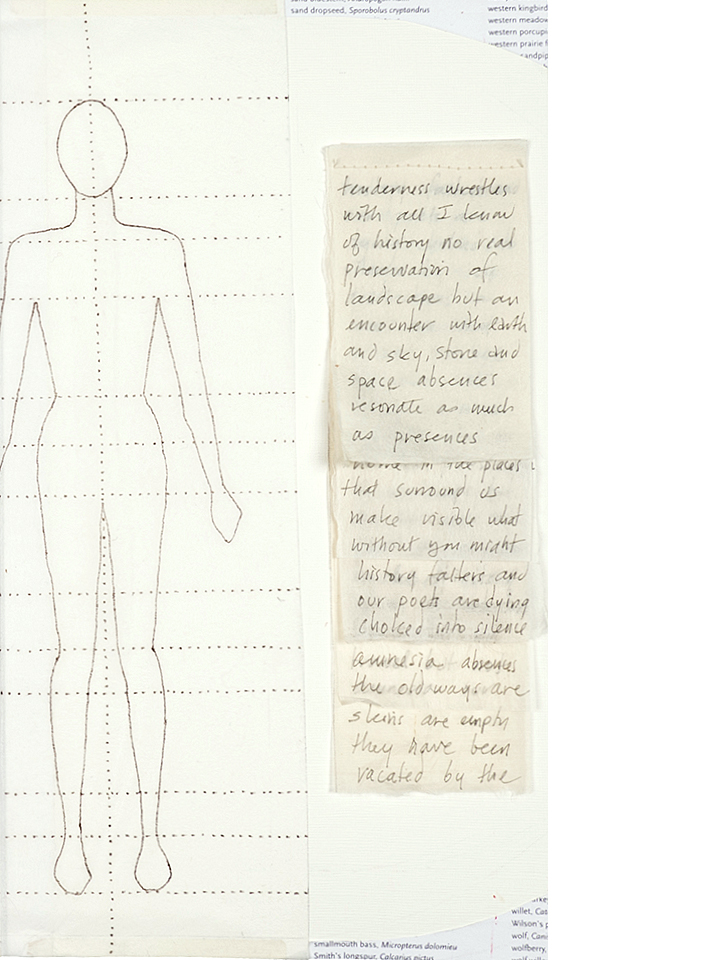 sand dropseed, Sporobolus cryptandrus
western kingbird
western meadow
western porcupi
western prairie f
sandpip
tenderness wrestles
with all I know
of history no real
preservation of
landscape but an
encounter with earth
and sky, stone and
space absences
resonate as much
as presences
in the places
that surround us
make visible what
without you might
history falters and
our poets are dying
choked into silence
amnesia absences
the old ways are
skins are empty
they have been
vacated by the
smallmouth bass, Micropterus dolomieu
Smith's longspur, Calcarius pictus
willet, Cat
Wilson's p
wolf, Cani
wolfberry,